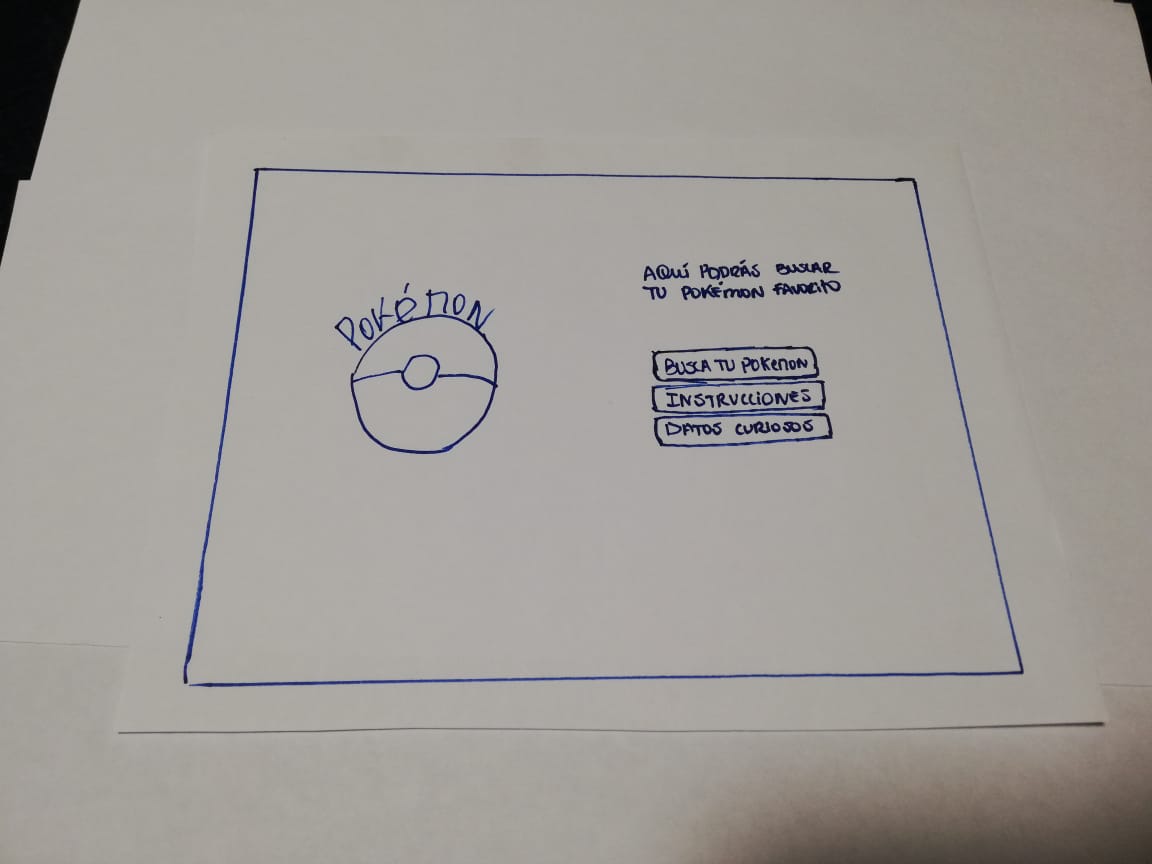 POKÉMON
AQUÍ PODRÁS BUSCAR
TU POKÉMON FAVORITO
BUSCA TU POKEMON
INSTRUCCIONES
DATOS CURIOSOS